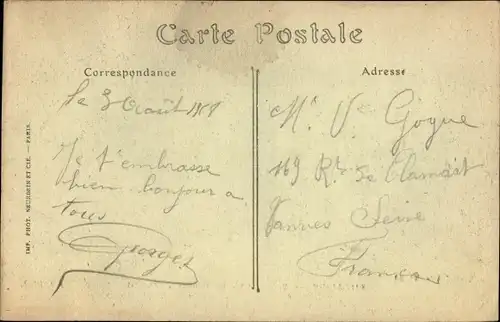 Carte Postale
Correspondance
Adresse
Le 3 Août 1918
Je t'embrasse
bien bonjour a
tous
Georges
Mr Ve Gogue
169 Rte de Clamart
Vannes Seine
France
IMP. PHOT. NEURDEIN ET CIE. — PARIS.